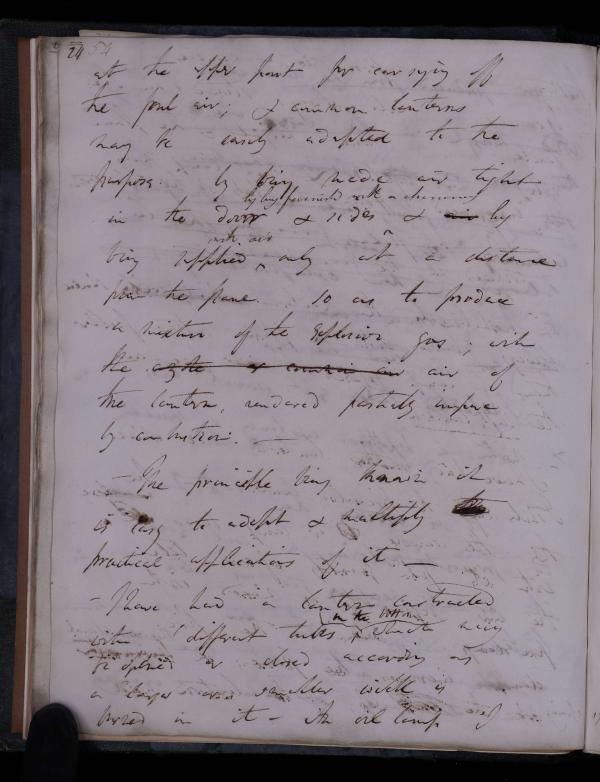 24 54
at the upper part for carrying off
the foul air; & common lanterns
may be easily adapted to the
purpose by being made air tight
by being furnished with a chimney
in the door & sides & air by
with air
being supplied only at a distance
from the flame. so as to produce
a mixture of the explosive gas; with
the azote or common air air of
the lantern, rendered partially impure
by combustion. —
— The principle being known it
is easy to adapt & multiply the
practical applications of it —
— I have had a lantern constructed
in the bottom
with different tubes which may
be opened or closed according as
a larger or smaller wick is
burned in it – An oil lamp of